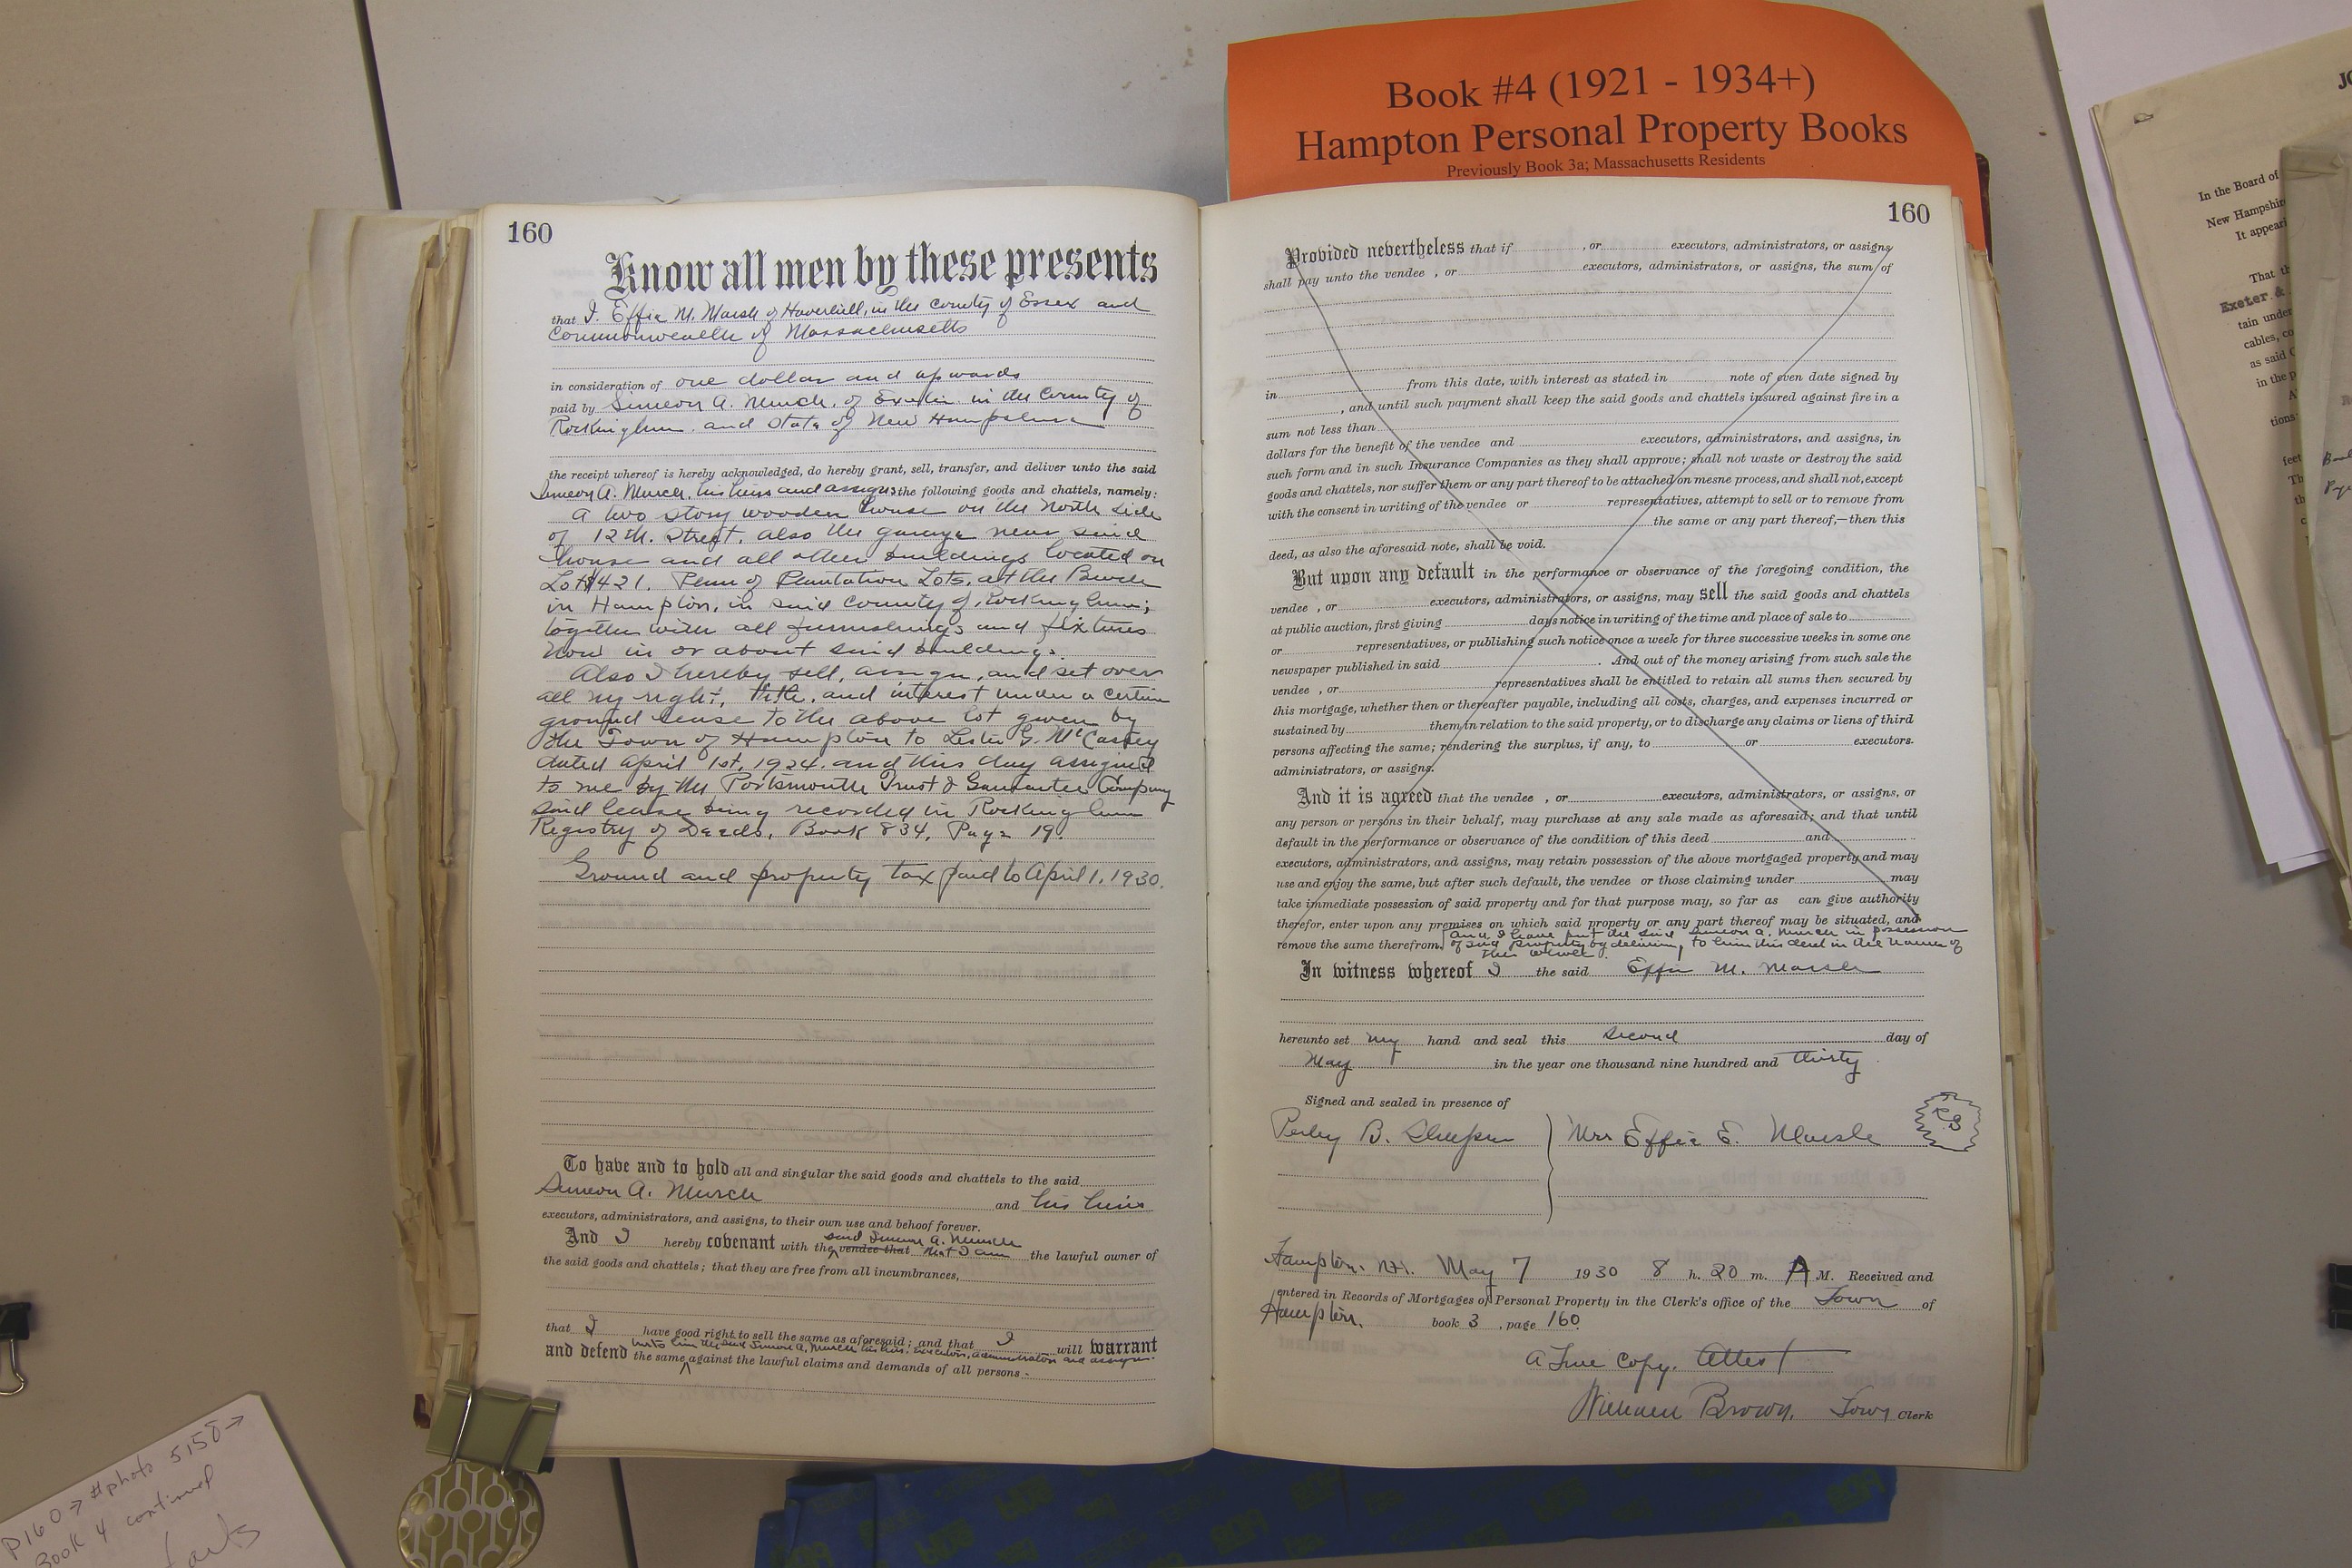 Book #4 (1921 - 1934+)
Hampton Personal Property Books
Previously Book 3a; Massachusetts Residents
160
Know all men by these presents
that I, Effie M. Marsh of Haverhill, in the county of Essex and
Commonwealth of Massachusetts
in consideration of one dollar and upwards
paid by Simeon A. Murch, of Exeter in the County of
Rockingham and State of New Hampshire
the receipt whereof is hereby acknowledged, do hereby grant, sell, transfer, and deliver unto the said
Simeon A. Murch, his heirs and assigns the following goods and chattels, namely:
A two story wooden house on the North side
of 12th. Street, also the garage near said
house and all other buildings located on
Lot #421. Plan of Plantation Lots, at the Beach
in Hampton, in said county of Rockingham;
together with all furnishings and fixtures
now in or about said buildings.
Also I hereby sell, assign, and set over
all my right, title, and interest under a certain
ground lease to the above lot given by
the Town of Hampton to Lester G. McCaskey
dated April 1st, 1924, and this day assigned
to me by the Portsmouth Trust & Guarantee Company
said lease being recorded in Rockingham
Registry of Deeds, Book 834, Page 19.
Ground and property tax paid to April 1, 1930.
To have and to hold all and singular the said goods and chattels to the said
Simeon A. Murch and his heirs
executors, administrators, and assigns, to their own use and behoof forever.
said Simeon A. Murch
And I hereby covenant with the vendee that that I am the lawful owner of
the said goods and chattels; that they are free from all incumbrances,
that I have good right to sell the same as aforesaid; and that I will warrant
unto him the said Simeon A. Murch his heirs, executors, administrators and assigns
and defend the same against the lawful claims and demands of all persons -
160
Provided nevertheless that if , or executors, administrators, or assigns
shall pay unto the vendee , or executors, administrators, or assigns, the sum of
from this date, with interest as stated in note of even date signed by
in
, and until such payment shall keep the said goods and chattels insured against fire in a
sum not less than
dollars for the benefit of the vendee and executors, administrators, and assigns, in
such form and in such Insurance Companies as they shall approve; shall not waste or destroy the said
goods and chattels, nor suffer them or any part thereof to be attached on mesne process, and shall not, except
with the consent in writing of the vendee or representatives, attempt to sell or to remove from
the same or any part thereof,—then this
deed, as also the aforesaid note, shall be void.
But upon any default in the performance or observance of the foregoing condition, the
vendee , or executors, administrators, or assigns, may sell the said goods and chattels
at public auction, first giving days notice in writing of the time and place of sale to
or representatives, or publishing such notice once a week for three successive weeks in some one
newspaper published in said . And out of the money arising from such sale the
vendee , or representatives shall be entitled to retain all sums then secured by
this mortgage, whether then or thereafter payable, including all costs, charges, and expenses incurred or
sustained by them in relation to the said property, or to discharge any claims or liens of third
persons affecting the same; rendering the surplus, if any, to or executors.
administrators, or assigns.
And it is agreed that the vendee , or executors, administrators, or assigns, or
any person or persons in their behalf, may purchase at any sale made as aforesaid; and that until
default in the performance or observance of the condition of this deed and
executors, administrators, and assigns, may retain possession of the above mortgaged property and may
use and enjoy the same, but after such default, the vendee or those claiming under may
take immediate possession of said property and for that purpose may, so far as can give authority
therefor, enter upon any premises on which said property or any part thereof may be situated, and
and I have put the said Simeon A. Murch in possession
remove the same therefrom. of said property by delivering to him this deed in the name of
the whole.
In witness whereof I the said Effie M. Marsh
hereunto set my hand and seal this second day of
May in the year one thousand nine hundred and thirty
Signed and sealed in presence of
Perley B. Mrs Effie E. Marsh
Hampton, N.H. May 7 1930 8 h. 20 m. A M. Received and
entered in Records of Mortgages of Personal Property in the Clerk's office of the Town of
Hampton. book 3 , page 160
A True Copy. Attest
William Brown, Town Clerk
P160 → #photo 5158 →
Book 4 continued
In the Board of
New Hampshire
It appeari
Exeter &
tain under
cables, co
as said C
in the p
tions
feet